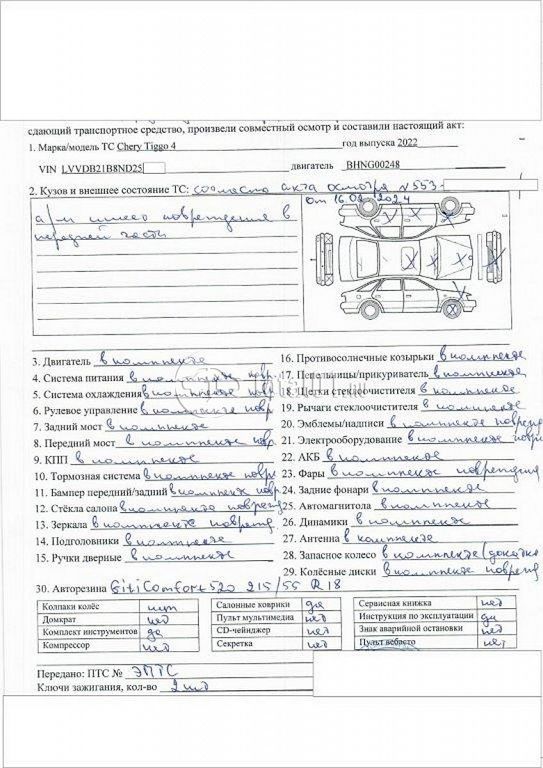 сдающий транспортное средство, произвели совместный осмотр и составили настоящий акт:
1. Марка/модель ТС Chery Tiggo 4 год выпуска 2022
VIN LVVDB21B8ND25 двигатель BHNG00248
2. Кузов и внешнее состояние ТС: согласно акта осмотра №553-
от 16.02.2024
а/м имеет повреждения в
передней части
3. Двигатель в комплекте
4. Система питания в комплекте повр.
5. Система охлаждения в комплекте повр
6. Рулевое управление в комплекте повр
7. Задний мост в комплекте
8. Передний мост в комплекте повр.
9. КПП в комплекте
10. Тормозная система в комплекте повре
11. Бампер передний/задний в комплекте повр
12. Стёкла салона в комплекте поврежд
13. Зеркала в комплекте поврежд
14. Подголовники в комплекте
15. Ручки дверные в комплекте
16. Противосолнечные козырьки в комплекте
17. Пепельницы/прикуриватель в комплекте
18. Щетки стеклоочистителя в комплекте
19. Рычаги стеклоочистителя в комплекте
20. Эмблемы/надписи в комплекте поврежд
21. Электрооборудование в комплекте повре
22. АКБ в комплекте
23. Фары в комплекте повреждения
24. Задние фонари в комплекте
25. Автомагнитола в комплекте
26. Динамики в комплекте
27. Антенна в комплекте
28. Запасное колесо в комплекте (докатка
29. Колёсные диски в комплекте поврежд
30. Авторезина GitiComfort 520 215/55 R18
Колпаки колёс нет Салонные коврики да Сервисная книжка нет
Домкрат нет Пульт мультимедиа нет Инструкция по эксплуатации да
Комплект инструментов да CD-чейнджер нет Знак аварийной остановки нет
Компрессор нет Секретка нет Пульт вебасто нет
Передано: ПТС № ЭПТС
Ключи зажигания, кол-во 2 шт